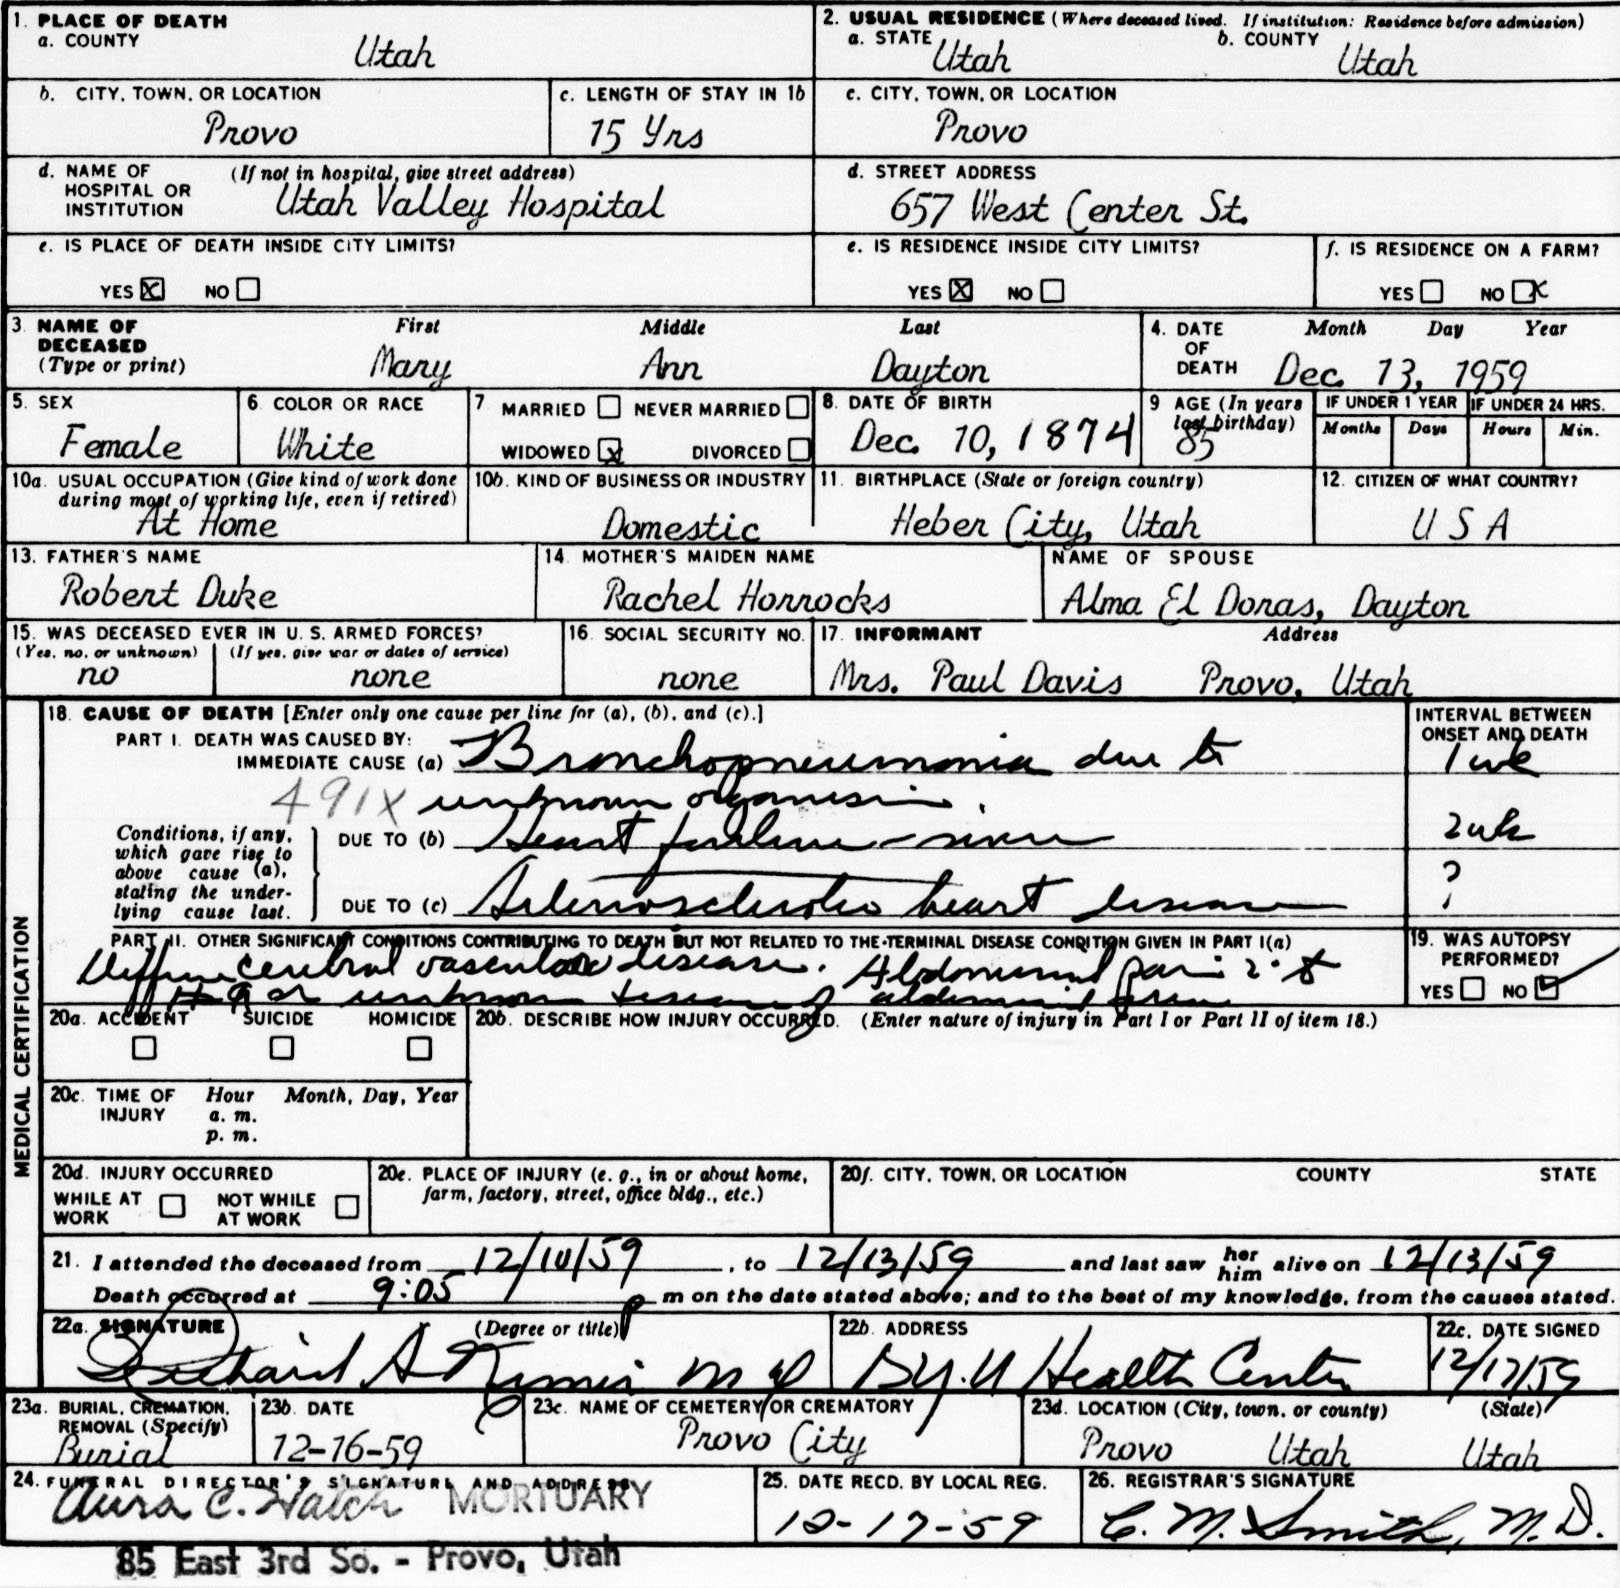 1. PLACE OF DEATH
a. COUNTY Utah
2. USUAL RESIDENCE (Where deceased lived. If institution: Residence before admission)
a. STATE Utah b. COUNTY Utah
b. CITY, TOWN, OR LOCATION Provo
c. LENGTH OF STAY IN 1b 15 Yrs
c. CITY, TOWN, OR LOCATION Provo
d. NAME OF HOSPITAL OR INSTITUTION (If not in hospital, give street address) Utah Valley Hospital
d. STREET ADDRESS 657 West Center St.
e. IS PLACE OF DEATH INSIDE CITY LIMITS?
YES X NO
e. IS RESIDENCE INSIDE CITY LIMITS?
YES X NO
f. IS RESIDENCE ON A FARM?
YES NO X
3. NAME OF DECEASED (Type or print) First Middle Last
Mary Ann Dayton
4. DATE OF DEATH Month Day Year
Dec. 13, 1959
5. SEX Female
6. COLOR OR RACE White
7 MARRIED NEVER MARRIED
WIDOWED X DIVORCED
8. DATE OF BIRTH Dec. 10, 1874
9 AGE (In years last birthday) 85
IF UNDER 1 YEAR IF UNDER 24 HRS.
Months Days Hours Min.
10a. USUAL OCCUPATION (Give kind of work done during most of working life, even if retired)
At Home
10b. KIND OF BUSINESS OR INDUSTRY
Domestic
11. BIRTHPLACE (State or foreign country)
Heber City, Utah
12. CITIZEN OF WHAT COUNTRY?
U S A
13. FATHER'S NAME
Robert Duke
14. MOTHER'S MAIDEN NAME
Rachel Horrocks
NAME OF SPOUSE
Alma El Doras, Dayton
15. WAS DECEASED EVER IN U. S. ARMED FORCES?
(Yes, no, or unknown) (If yes, give war or dates of service)
no none
16. SOCIAL SECURITY NO.
none
17. INFORMANT Address
Mrs. Paul Davis Provo, Utah
MEDICAL CERTIFICATION
18. CAUSE OF DEATH [Enter only one cause per line for (a), (b), and (c).]
INTERVAL BETWEEN ONSET AND DEATH
PART I. DEATH WAS CAUSED BY:
IMMEDIATE CAUSE (a) Bronchopneumonia due to 1 wk
491X unknown organism.
Conditions, if any, which gave rise to above cause (a), stating the underlying cause last.
DUE TO (b) Heart failure 2 wk
DUE TO (c) Arteriosclerotic heart disease ?
PART II. OTHER SIGNIFICANT CONDITIONS CONTRIBUTING TO DEATH BUT NOT RELATED TO THE TERMINAL DISEASE CONDITION GIVEN IN PART I(a)
Diffuse cerebral vascular disease. Abdominal pain
unknown
19. WAS AUTOPSY PERFORMED?
YES NO ✓
20a. ACCIDENT SUICIDE HOMICIDE
20b. DESCRIBE HOW INJURY OCCURRED. (Enter nature of injury in Part I or Part II of item 18.)
20c. TIME OF INJURY Hour Month, Day, Year
a. m.
p. m.
20d. INJURY OCCURRED
WHILE AT WORK NOT WHILE AT WORK
20e. PLACE OF INJURY (e. g., in or about home, farm, factory, street, office bldg., etc.)
20f. CITY, TOWN, OR LOCATION COUNTY STATE
21. I attended the deceased from 12/10/59, to 12/13/59 and last saw her him alive on 12/13/59
Death occurred at 9:05 p m on the date stated above; and to the best of my knowledge, from the causes stated.
22a. SIGNATURE (Degree or title)
M D
22b. ADDRESS
B.Y.U Health Center
22c. DATE SIGNED
12/17/59
23a. BURIAL, CREMATION, REMOVAL (Specify)
Burial
23b. DATE
12-16-59
23c. NAME OF CEMETERY OR CREMATORY
Provo City
23d. LOCATION (City, town, or county) (State)
Provo Utah Utah
24. FUNERAL DIRECTOR'S SIGNATURE AND ADDRESS
C. Hatch MORTUARY
85 East 3rd So. - Provo, Utah
25. DATE RECD. BY LOCAL REG.
12-17-59
26. REGISTRAR'S SIGNATURE
C. M. Smith, M. D.